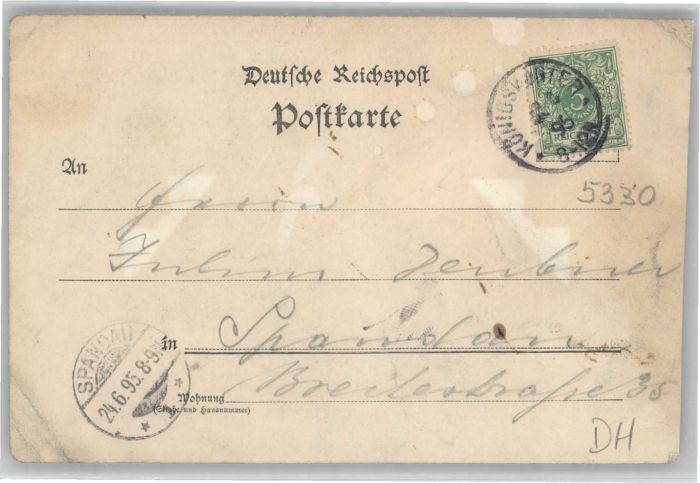 Deutsche Reichspost
Postkarte
KÖNIGSWINTER
5
8-9N
5330
An
Herrn
Julius Deubner
in Spandau
SPANDAU
24.6.95.8-9N
Wohnung
(Straße und Hausnummer)
Breitestraße 35
DH